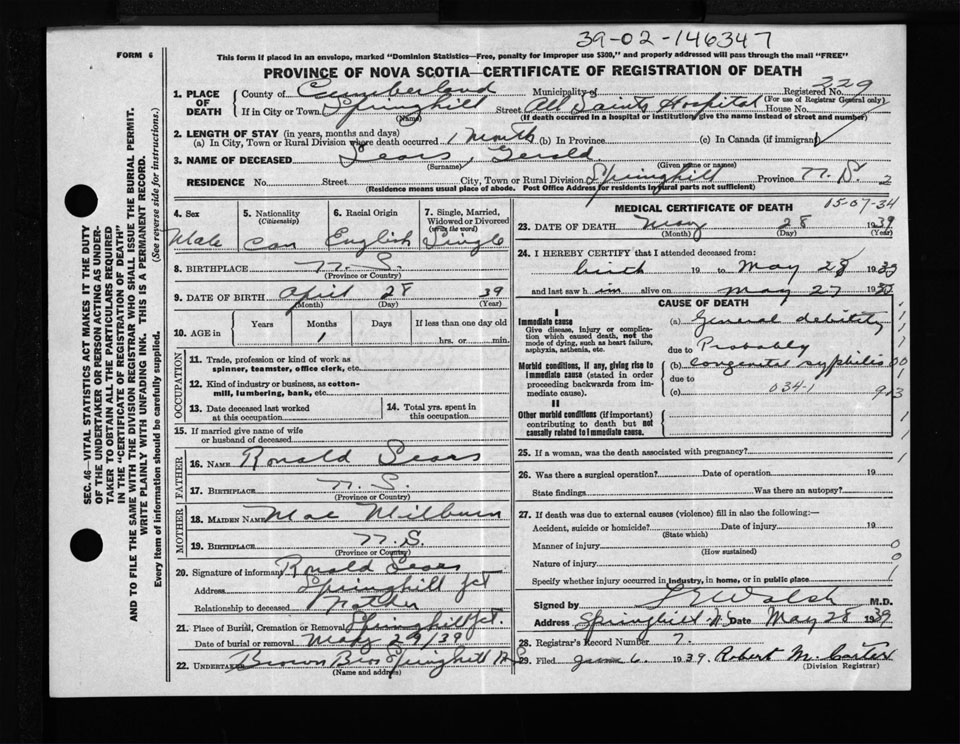 39-02-146347
FORM 6
This form if placed in an envelope, marked "Dominion Statistics—Free, penalty for improper use $300," and properly addressed will pass through the mail "FREE"
PROVINCE OF NOVA SCOTIA—CERTIFICATE OF REGISTRATION OF DEATH
229
1. PLACE OF DEATH
County of Cumberland Municipality of Registered No.
(For use of Registrar General only)
If in City or Town Springhill Street All Saints Hospital House No.
(Name) (If death occurred in a hospital or institution, give the name instead of street and number)
2. LENGTH OF STAY (in years, months and days)
(a) In City, Town or Rural Division where death occurred 1 Month (b) In Province (c) In Canada (if immigrant)
3. NAME OF DECEASED Sears, Gerald
(Surname) (Given name or names)
RESIDENCE No. Street City, Town or Rural Division Springhill Province N.S. 2
(Residence means usual place of abode. Post Office Address for residents in rural parts not sufficient)
4. Sex Male
5. Nationality (Citizenship) Can
6. Racial Origin English
7. Single, Married, Widowed or Divorced (write the word) Single
8. BIRTHPLACE N.S.
(Province or Country)
9. DATE OF BIRTH April 28 39
(Month) (Day) (Year)
10. AGE in Years Months Days If less than one day old
1 hrs. or min.
OCCUPATION
11. Trade, profession or kind of work as spinner, teamster, office clerk, etc.
12. Kind of industry or business, as cotton-mill, lumbering, bank, etc.
13. Date deceased last worked at this occupation
14. Total yrs. spent in this occupation
15. If married give name of wife or husband of deceased
FATHER
16. NAME Ronald Sears
17. BIRTHPLACE N.S.
(Province or Country)
MOTHER
18. MAIDEN NAME Mae Milburn
19. BIRTHPLACE N.S.
(Province or Country)
20. Signature of informant Ronald Sears
Address Springhill Jct
Relationship to deceased Father
21. Place of Burial, Cremation or Removal Springhill Jct.
Date of burial or removal May 29/39
22. UNDERTAKER Brown Bros Springhill N S
(Name and address)
MEDICAL CERTIFICATE OF DEATH 15-07-34
23. DATE OF DEATH May 28 1939
(Month) (Day) (Year)
24. I HEREBY CERTIFY that I attended deceased from:
birth 19 to May 28 1939
and last saw him alive on May 27 1939
CAUSE OF DEATH
I
Immediate cause
Give disease, injury or complication which caused death, not the mode of dying, such as heart failure, asphyxia, asthenia, etc.
(a) General debility
due to Probably
Morbid conditions, if any, giving rise to immediate cause (stated in order proceeding backwards from immediate cause).
(b) congenital syphilis
due to
(c) 034-1
II
Other morbid conditions (if important) contributing to death but not causally related to immediate cause.
25. If a woman, was the death associated with pregnancy?
26. Was there a surgical operation? Date of operation 19
State findings Was there an autopsy?
27. If death was due to external causes (violence) fill in also the following:—
Accident, suicide or homicide? Date of injury 19
(State which)
Manner of injury 0
(How sustained)
Nature of injury 0
Specify whether injury occurred in industry, in home, or in public place 1
Signed by Walsh M.D.
Address Springhill N.S. Date May 28 1939
28. Registrar's Record Number 7.
29. Filed June 6. 1939. Robert M. Carter
(Division Registrar)
SEC. 46—VITAL STATISTICS ACT MAKES IT THE DUTY
OF THE UNDERTAKER OR PERSON ACTING AS UNDER-
TAKER TO OBTAIN ALL THE PARTICULARS REQUIRED
IN THE "CERTIFICATE OF REGISTRATION OF DEATH"
AND TO FILE THE SAME WITH THE DIVISION REGISTRAR WHO SHALL ISSUE THE BURIAL PERMIT.
WRITE PLAINLY WITH UNFADING INK. THIS IS A PERMANENT RECORD.
Every item of information should be carefully supplied. (See reverse side for instructions.)